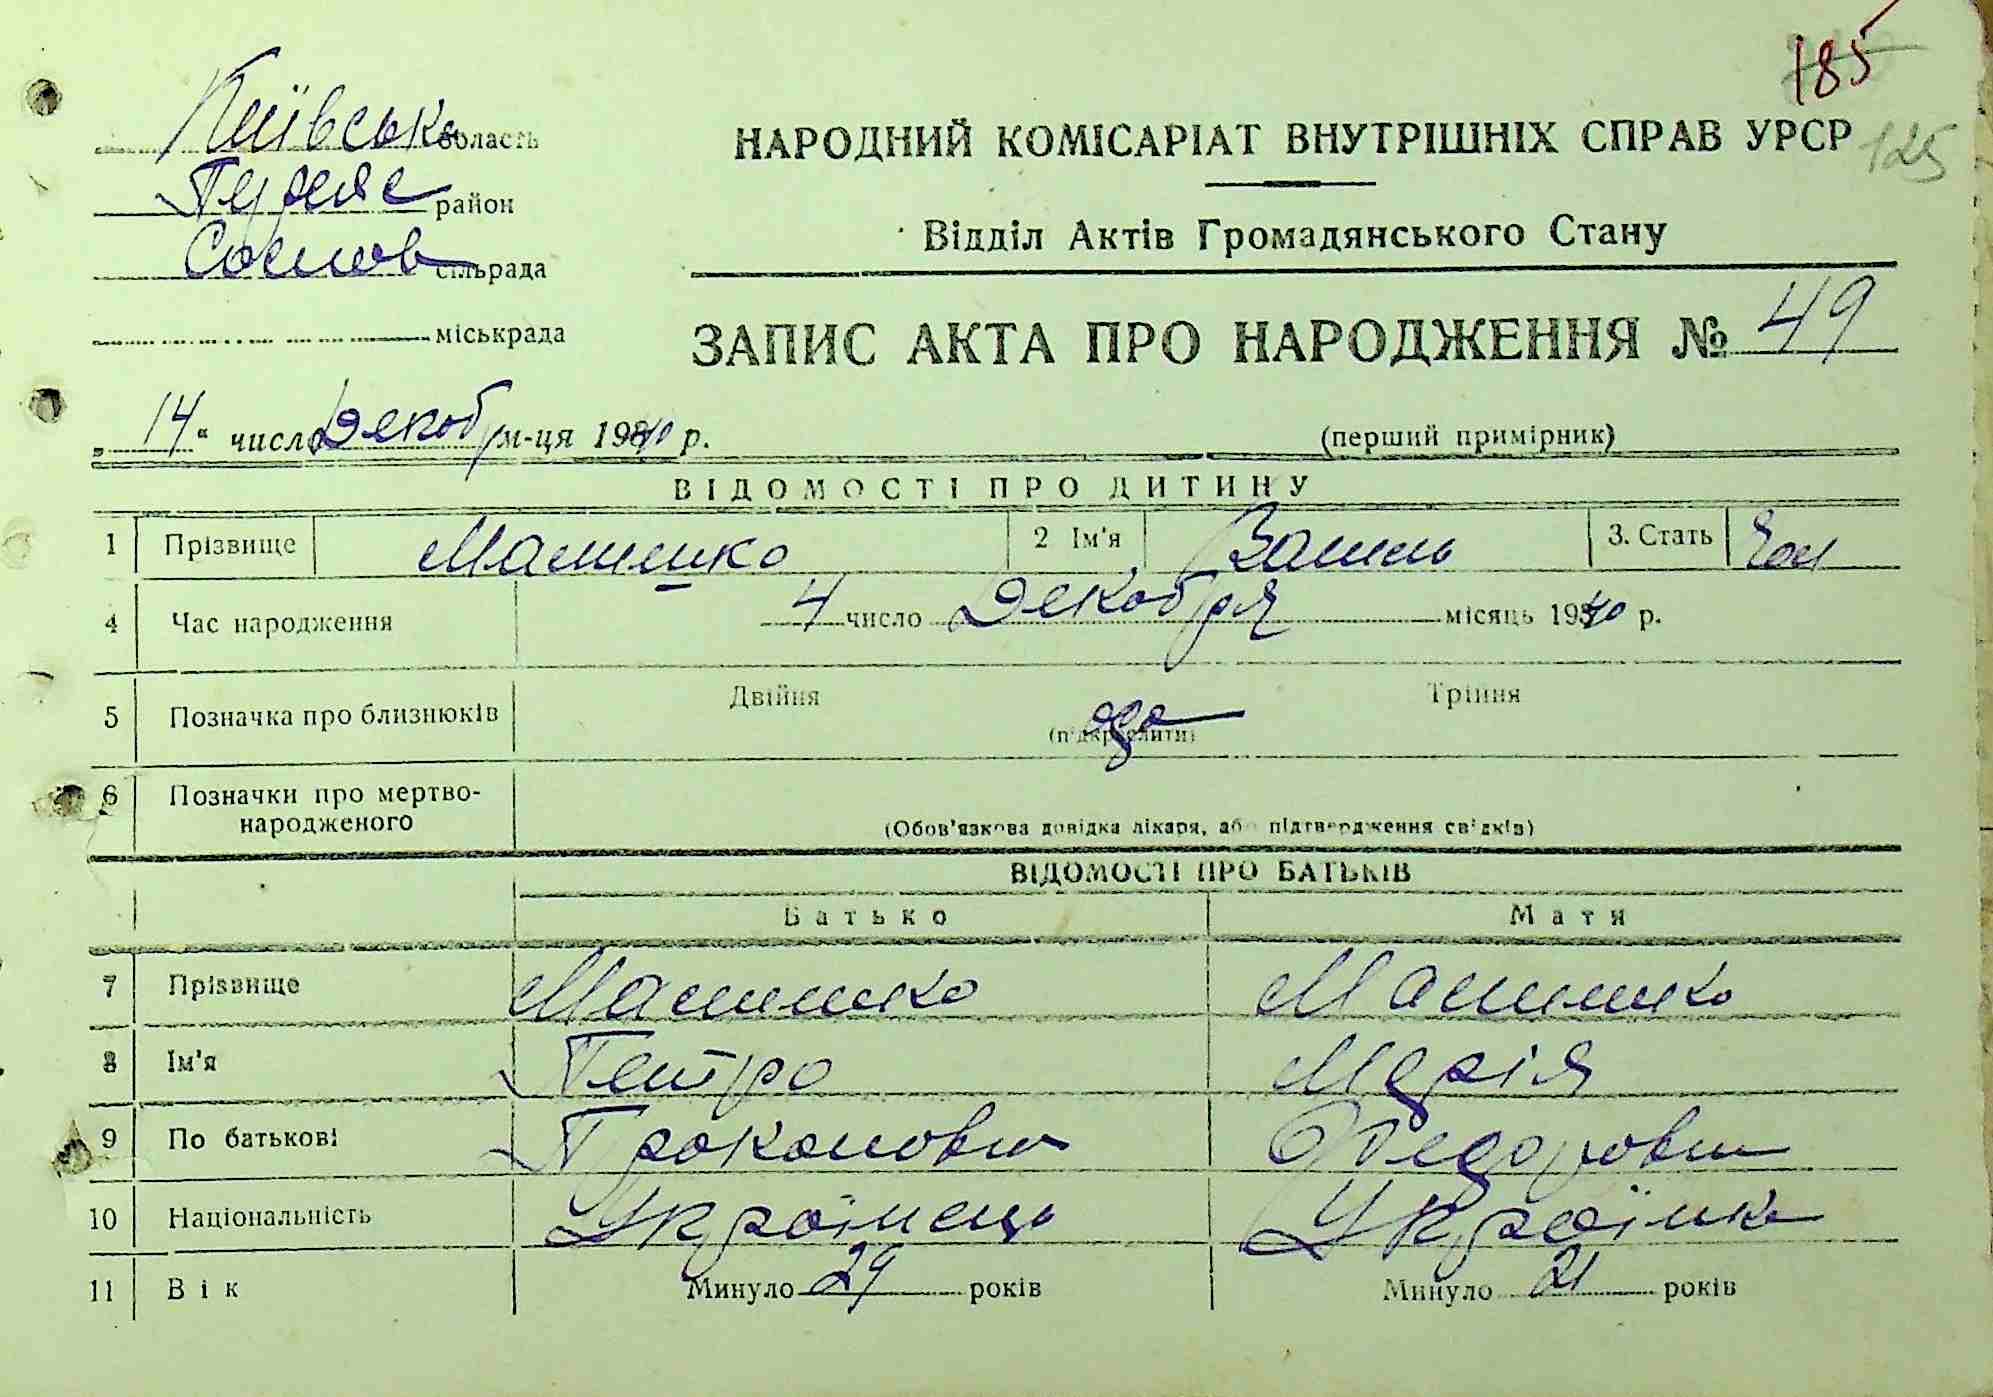 185
125
Київськ область
район
сільрада
міськрада
НАРОДНИЙ КОМІСАРІАТ ВНУТРІШНІХ СПРАВ УРСР
Відділ Актів Громадянського Стану
ЗАПИС АКТА ПРО НАРОДЖЕННЯ № 49
„14“ число Декобр м-ця 1940 р.
(перший примірник)
ВІДОМОСТІ ПРО ДИТИНУ
1 Прізвище 2 Ім'я 3. Стать Чол
4 Час народження 4 число Декобря місяць 1940 р.
5 Позначка про близнюків Двійня Трійня
(підкреслити)
6 Позначки про мертво-
народженого
(Обов'язкова довідка лікаря, або підтвердження свідків)
ВІДОМОСТІ ПРО БАТЬКІВ
Батько Мати
7 Прізвище
8 Ім'я Петро Марія
9 По батькові Прокопович Федоровн
10 Національність Українець Українка
11 Вік Минуло 29 років Минуло 21 років